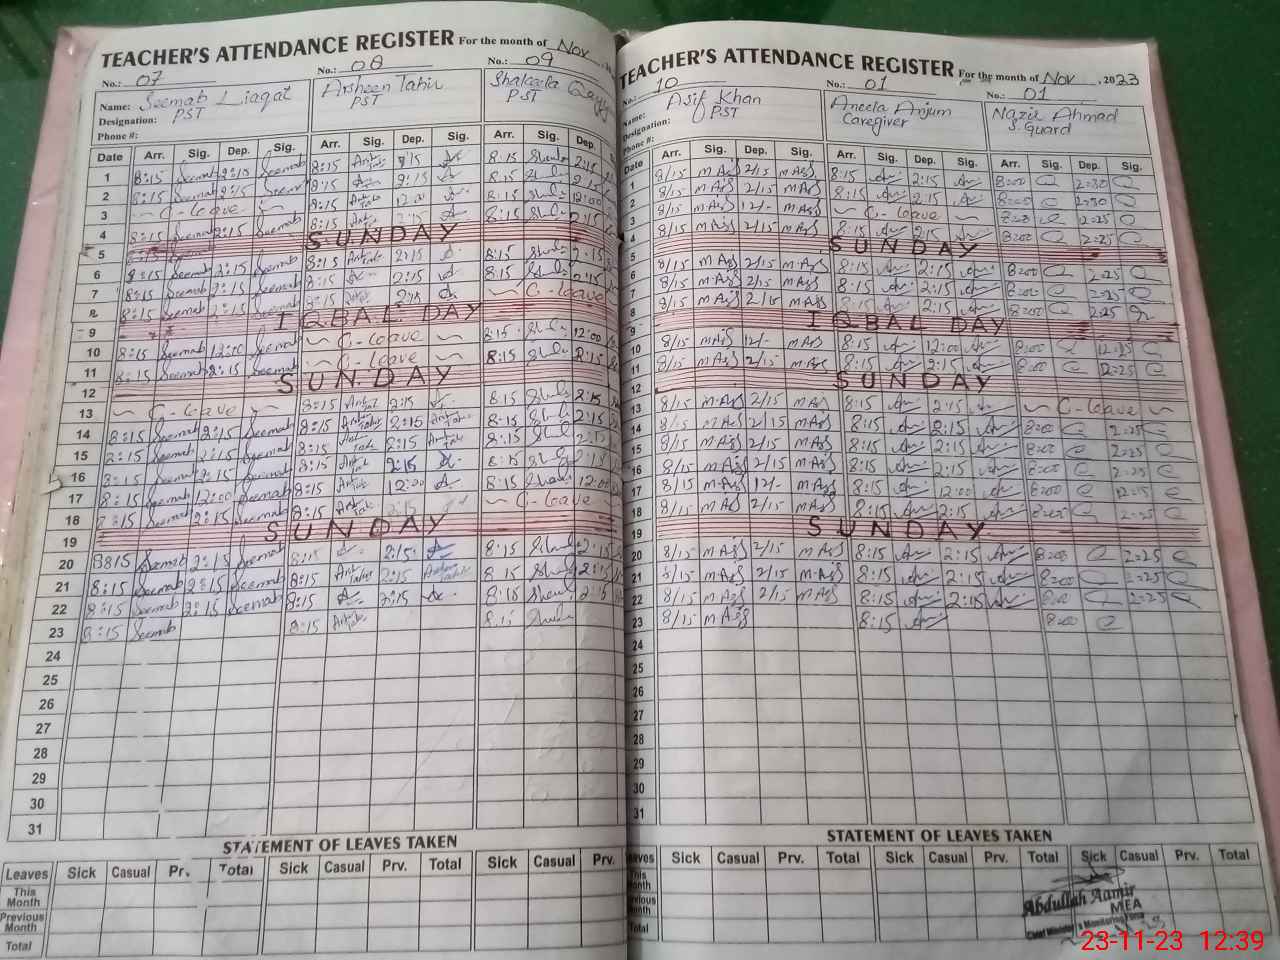 TEACHER'S ATTENDANCE REGISTER For the month of Nov
No.: 07 No.: 08 No.: 09
Name: Seemab Liaqat Arsheen Tahir Shakeela
Designation: PST PST PST
Phone #:
Date Arr. Sig. Dep. Sig. Arr. Sig. Dep. Sig. Arr. Sig. Dep.
1 8:15 Seemab 2:15 Seemab 8:15 2:15 8:15 2:15
2 8:15 Seemab 2:15 Seemab 8:15 2:15 8:15 2:15
3 ~ C-leave ~ 8:15 12:00 8:15 12:00
4 8:15 Seemab 2:15 Seemab 8:15 2:15 8:15 2:15
5 SUNDAY
6 8:15 Seemab 2:15 Seemab 8:15 2:15 8:15 2:15
7 8:15 Seemab 2:15 Seemab 8:15 2:15 8:15 2:15
8 8:15 Seemab 2:15 Seemab 8:15 2:15 ~ C-leave
9 IQBAL DAY
10 8:15 Seemab 12:00 Seemab ~ C-leave ~ 8:15 12:00
11 8:15 Seemab 2:15 Seemab ~ C-leave ~ 8:15 2:15
12 SUNDAY
13 ~ C-leave ~ 8:15 2:15 8:15 2:15
14 8:15 Seemab 2:15 Seemab 8:15 2:15 8:15 2:15
15 2:15 Seemab 2:15 Seemab 8:15 2:15 8:15 2:15
16 8:15 Seemab 2:15 Seemab 8:15 2:15 8:15 2:15
17 8:15 Seemab 12:00 Seemab 8:15 12:00 8:15 12:00
18 8:15 Seemab 2:15 Seemab 8:15 2:15 ~ C-leave
19 SUNDAY
20 8:15 Seemab 2:15 Seemab 8:15 2:15 8:15 2:15
21 8:15 Seemab 2:15 Seemab 8:15 2:15 8:15 2:15
22 8:15 Seemab 2:15 Seemab 8:15 2:15 8:15 2:15
23 8:15 Seemab 8:15 8:15
24
25
26
27
28
29
30
31
STATEMENT OF LEAVES TAKEN
Leaves Sick Casual Prv. Total Sick Casual Prv. Total Sick Casual Prv.
This Month
Previous Month
Total
TEACHER'S ATTENDANCE REGISTER For the month of Nov, 2023
No.: 10 No.: 01 No.: 01
Name: Asif Khan Aneela Anjum Nazir Ahmad
Designation: PST Caregiver S. Guard
Phone #:
Date Arr. Sig. Dep. Sig. Arr. Sig. Dep. Sig. Arr. Sig. Dep. Sig.
1 8/15 m Asif 2/15 m Asif 8:15 2:15 8:00 2:30
2 8/15 m Asif 2/15 m Asif 8:15 2:15 8:00 2:30
3 8/15 m Asif 12/- m Asif ~ C-leave ~ 8:00 2:25
4 8/15 m Asif 2/15 m Asif 8:15 2:15 8:00 2:25
5 SUNDAY
6 8/15 m Asif 2/15 m Asif 8:15 2:15 8:00 2:25
7 8/15 m Asif 2/15 m Asif 8:15 2:15 8:00 2:25
8 8/15 m Asif 2/15 m Asif 8:15 2:15 8:00 2:25
9 IQBAL DAY
10 8/15 m Asif 12/- m Asif 8:15 12:00 8:00 12:25
11 8/15 m Asif 2/15 m Asif 8:15 2:15 8:00 2:25
12 SUNDAY
13 8/15 m Asif 2/15 m Asif 8:15 2:15 ~ C-leave ~
14 8/15 m Asif 2/15 m Asif 8:15 2:15 8:00 2:25
15 8/15 m Asif 2/15 m Asif 8:15 2:15 8:00 2:25
16 8/15 m Asif 2/15 m Asif 8:15 2:15 8:00 2:25
17 8/15 m Asif 12/- m Asif 8:15 12:00 8:00 12:15
18 8/15 m Asif 2/15 m Asif 8:15 2:15 8:00 2:25
19 SUNDAY
20 8/15 m Asif 2/15 m Asif 8:15 2:15 8:00 2:25
21 8/15 m Asif 2/15 m Asif 8:15 2:15 8:00 2:25
22 8/15 m Asif 2/15 m Asif 8:15 2:15 8:00 2:25
23 8/15 m Asif 8:15 8:00
24
25
26
27
28
29
30
31
STATEMENT OF LEAVES TAKEN
Leaves Sick Casual Prv. Total Sick Casual Prv. Total Sick Casual Prv. Total
This Month
Previous Month
Total
Abdullah Aamir
MEA
Chief Minister's Monitoring Force
23-11-23 12:39